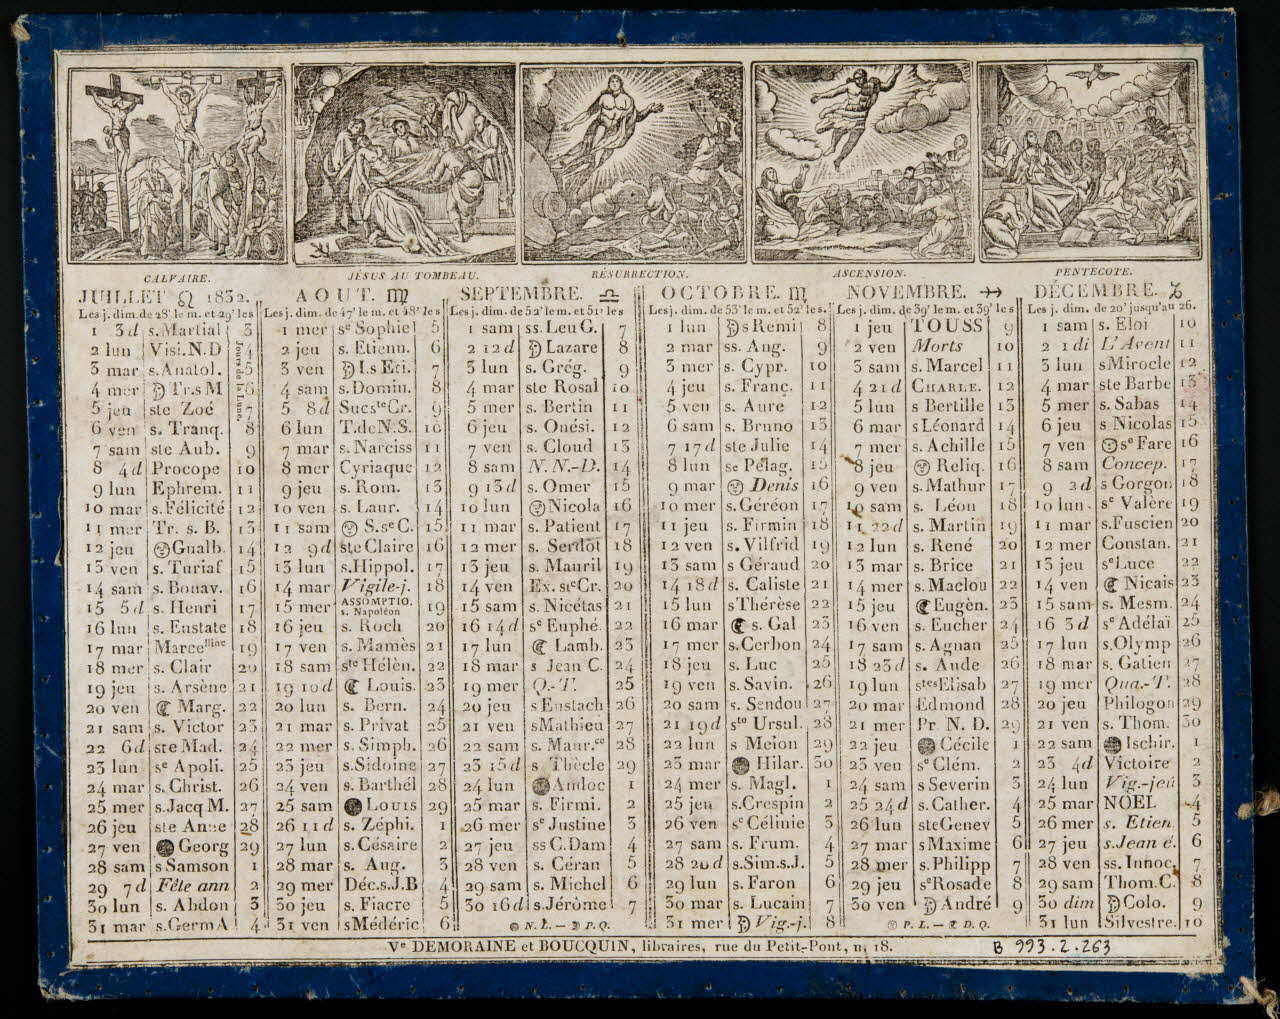 CALVAIRE.
JÉSUS AU TOMBEAU.
RÉSURRECTION.
ASCENSION.
PENTECOTE.
JUILLET ♌ 1832.
Les j. dim. de 28' le m. et 29' les
1 3d s. Martial 3
2 lun Visi. N. D 4
3 mar s. Anatol. 5
4 mer Tr. s M 6
5 jeu ste Zoé 7
6 ven s. Tranq. 8
7 sam ste Aub. 9
8 4d Procope 10
9 lun Ephrem. 11
10 mar s. Félicité 12
11 mer Tr. s. B. 13
12 jeu Gualb. 14
13 ven s. Turiaf 15
14 sam s. Bonav. 16
15 5d s. Henri 17
16 lun s. Eustate 18
17 mar Marcelline 19
18 mer s. Clair 20
19 jeu s. Arsène 21
20 ven Marg. 22
21 sam s. Victor 23
22 6d ste Mad. 24
23 lun se Apoli. 25
24 mar s. Christ. 26
25 mer s. Jacq M. 27
26 jeu ste Anne 28
27 ven Georg 29
28 sam s Samson 1
29 7d Fête ann 2
30 lun s. Abdon 3
31 mar s. Germ A 4
Jours de la Lune.
AOUT. ♍
Les j. dim. de 47' le m. et 48' le s
1 mer se Sophie 5
2 jeu s. Etienn. 6
3 ven I.s Eti. 7
4 sam s. Domin. 8
5 8d Sucs te Cr. 9
6 lun T. de N. S. 10
7 mar s. Narciss 11
8 mer Cyriaque 12
9 jeu s. Rom. 13
10 ven s. Laur. 14
11 sam S. se C. 15
12 9d ste Claire 16
13 lun s. Hippol. 17
14 mar Vigile-j. 18
15 mer ASSOMPTIO. s. Napoléon 19
16 jeu s. Roch 20
17 ven s. Mamès 21
18 sam ste Hélèn. 22
19 10d Louis. 23
20 lun s. Bern. 24
21 mar s. Privat 25
22 mer s. Simph. 26
23 jeu s. Sidoine 27
24 ven s. Barthél 28
25 sam LOUIS 29
26 11d s. Zéphi. 1
27 lun s. Césaire 2
28 mar s. Aug. 3
29 mer Déc. s. J. B 4
30 jeu s. Fiacre 5
31 ven s Médéric 6
SEPTEMBRE. ♎
Les j. dim. de 52' le m. et 51' les
1 sam ss. Leu G. 7
2 12d Lazare 8
3 lun s. Grég. 9
4 mar ste Rosal 10
5 mer s. Bertin 11
6 jeu s. Onési. 12
7 ven s. Cloud 13
8 sam N. N.-D. 14
9 13d s. Omer 15
10 lun Nicola 16
11 mar s. Patient 17
12 mer s. Serdot 18
13 jeu s. Mauril 19
14 ven Ex. ste Cr. 20
15 sam s. Nicétas 21
16 14d se Euphé. 22
17 lun Lamb. 23
18 mar s Jean C. 24
19 mer Q.-T. 25
20 jeu s Eustach 26
21 ven s Mathieu 27
22 sam s. Maur.ce 28
23 15d s. Thècle 29
24 lun Andoc 1
25 mar s. Firmi. 2
26 mer se Justine 3
27 jeu ss C. Dam 4
28 ven s. Céran 5
29 sam s. Michel 6
30 16d s. Jérôme 7
N. L. — P. Q.
OCTOBRE. ♏
Les j. dim. de 53' le m. et 52' le s.
1 lun s Remi 8
2 mar ss. Ang. 9
3 mer s. Cypr. 10
4 jeu s. Franç. 11
5 ven s. Aure 12
6 sam s. Bruno 13
7 17d ste Julie 14
8 lun se Pélag. 15
9 mar Denis 16
10 mer s. Géréon 17
11 jeu s. Firmin 18
12 ven s. Vilfrid 19
13 sam s Géraud 20
14 18d s. Caliste 21
15 lun s Thérèse 22
16 mar s. Gal 23
17 mer s. Cerbon 24
18 jeu s. Luc 25
19 ven s. Savin. 26
20 sam s. Sendou 27
21 19d ste Ursul. 28
22 lun s Melon 29
23 mar Hilar. 30
24 mer s. Magl. 1
25 jeu s. Crespin 2
26 ven se Célinie 3
27 sam s. Frum. 4
28 20d s. Sim. s. J. 5
29 lun s. Faron 6
30 mar s. Lucain 7
31 mer Vig.-j. 8
NOVEMBRE. ♐
Les j. dim. de 39' le m. et 39' le s
1 jeu TOUSS 9
2 ven Morts 10
3 sam s. Marcel 11
4 21d CHARLE. 12
5 lun s Bertille 13
6 mar s Léonard 14
7 mer s. Achille 15
8 jeu Reliq. 16
9 ven s. Mathur 17
10 sam s. Léon 18
11 22d s. Martin 19
12 lun s. René 20
13 mar s. Brice 21
14 mer s. Maclou 22
15 jeu Eugèn. 23
16 ven s. Eucher 24
17 sam s. Agnan 25
18 23d s. Aude 26
19 lun stes Elisab 27
20 mar Edmond 28
21 mer Pr N. D. 29
22 jeu Cécile 1
23 ven se Clém. 2
24 sam s Severin 3
25 24d s. Cather. 4
26 lun ste Genev 5
27 mar s Maxime 6
28 mer s. Philipp 7
29 jeu se Rosade 8
30 ven André 9
P. L. — D. Q.
DÉCEMBRE. ♑
Les j. dim. de 20' jusqu'au 26.
1 sam s. Eloi 10
2 1di L'Avent 11
3 lun s Mirocle 12
4 mar ste Barbe 13
5 mer s. Sabas 14
6 jeu s Nicolas 15
7 ven se Fare 16
8 sam Concep. 17
9 2d s Gorgon 18
10 lun se Valère 19
11 mar s. Fuscien 20
12 mer Constan. 21
13 jeu se Luce 22
14 ven Nicais 23
15 sam s. Mesm. 24
16 3d se Adélaï 25
17 lun s. Olymp 26
18 mar s. Gatien 27
19 mer Qua.-T. 28
20 jeu Philogon 29
21 ven s. Thom. 30
22 sam Ischir. 1
23 4d Victoire 2
24 lun Vig.-jeû 3
25 mar NOEL 4
26 mer s. Etien 5
27 jeu s. Jean é. 6
28 ven ss. Innoc. 7
29 sam Thom. C. 8
30 dim Colo. 9
31 lun Silvestre. 10
Ve DEMORAINE et BOUCQUIN, libraires, rue du Petit-Pont, n. 18.
B 993.2.263